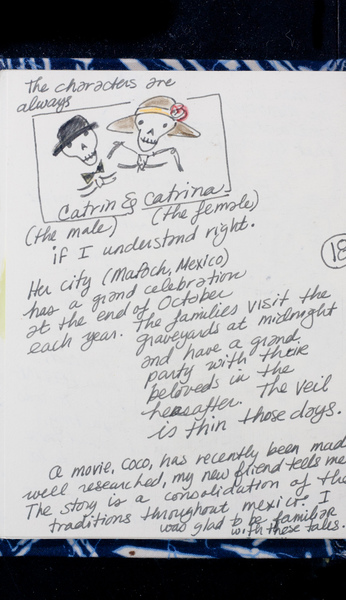 The characters are
always
Catrin & Catrina
(the male) (the female)
if I understand right.
18
Her city (Mafoch, Mexico)
has a grand celebration
at the end of October
each year. The families visit the
graveyards at midnight
and have a grand
party with their
beloveds in the
hereafter. The veil
is thin those days.
A movie, Coco, has recently been made
well researched, my new friend tells me
The story is a consolidation of the
traditions throughout mexico. I
was glad to be familiar
with these tales.